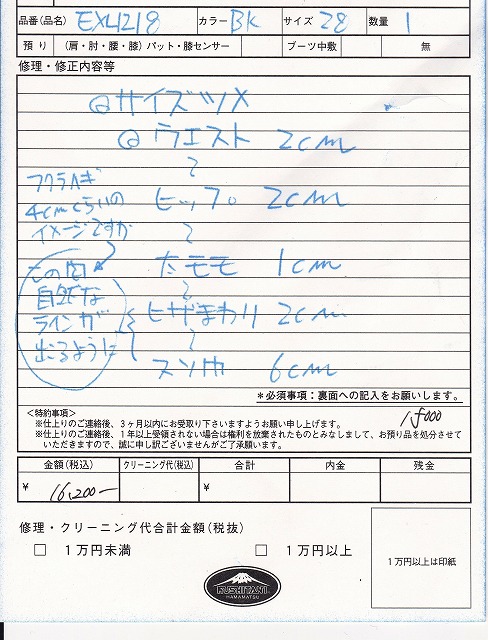 品番(品名) EX4218 カラー BK サイズ 28 数量 1
預り (肩・肘・腰・膝)パット・膝センサー ブーツ中敷 無
修理・修正内容等
@サイズツメ
@ウエスト 2cm
〜
フクラハギ
4cmくらいの
イメージですが
ヒップ 2cm
〜
太モモ 1cm
〜
この間
自然な
ラインが
出るように
ヒザまわり 2cm
〜
スソ巾 6cm
*必須事項:裏面への記入をお願いします。
<特約事項>
※仕上りのご連絡後、3ヶ月以内にお受取り下さいますようお願い申し上げます。
※仕上りのご連絡後、1年以上受領されない場合は権利を放棄されたものとみなしまして、お預り品を処分させて
いただきますので、誠に申し訳ございませんがご了承願います。
金額(税込) クリーニング代(税込) 合計 内金 残金
¥ 16,200- ¥
修理・クリーニング代合計金額(税抜)
□ 1万円未満 □ 1万円以上
1万円以上は印紙
KUSHITANI
HAMAMATSU